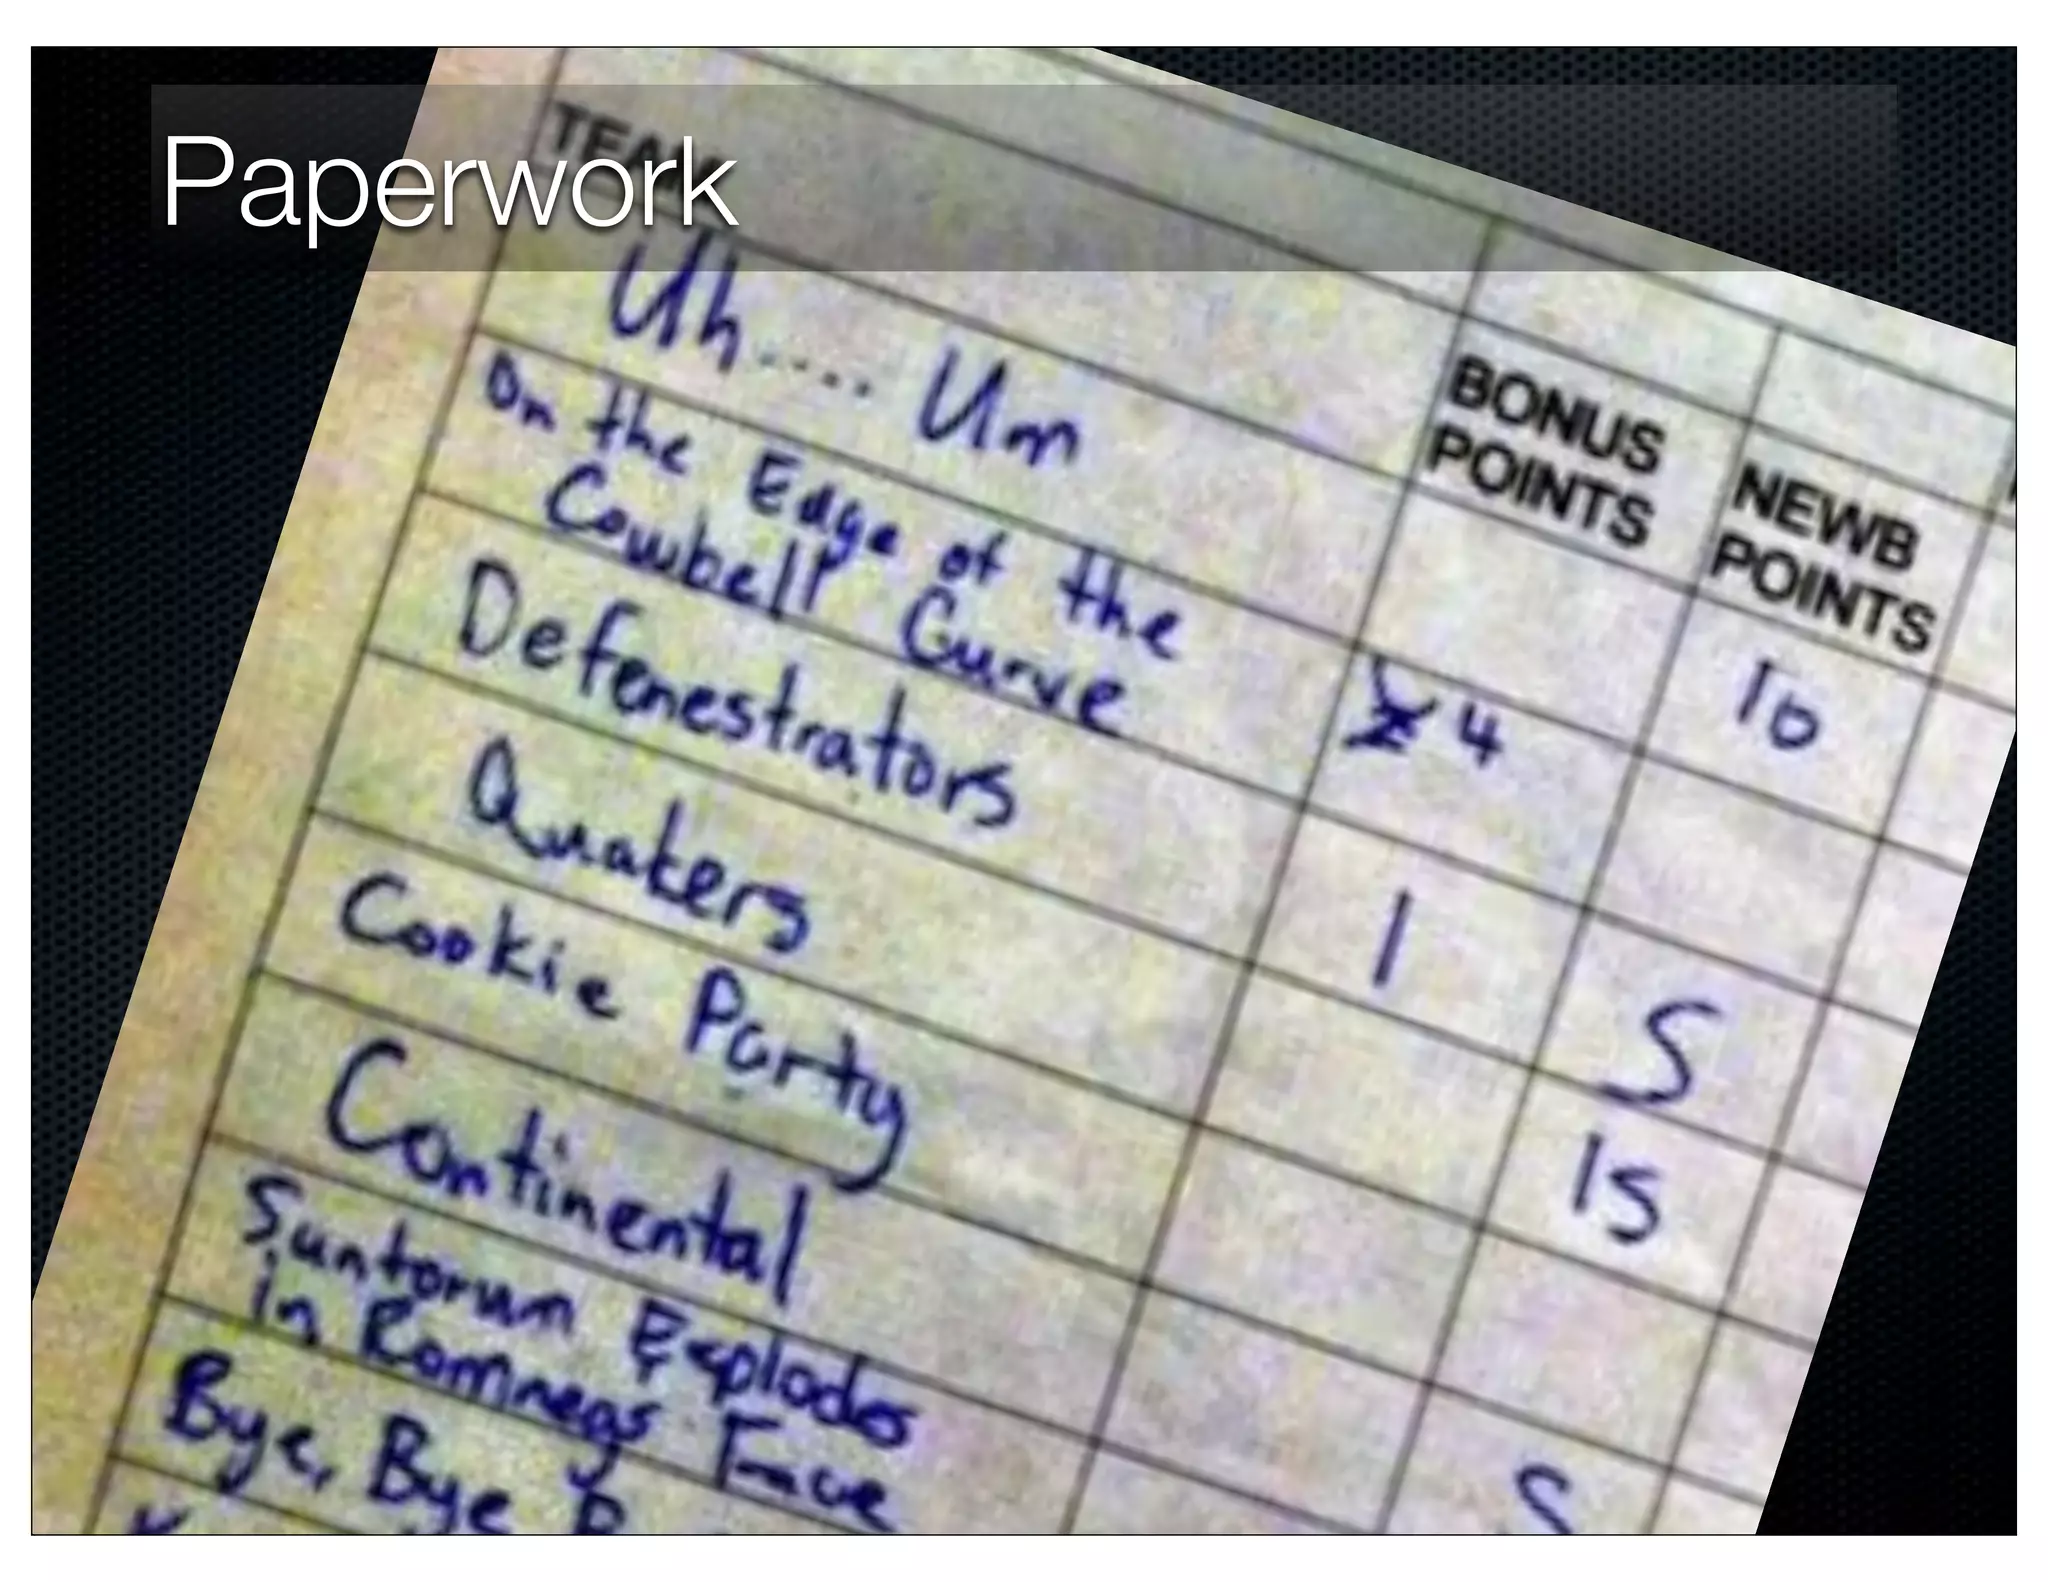 Paperwork
TEAM
BONUS
POINTS
NEWB
POINTS
Uh.... Um
10
On the Edge of the
Cowbell Curve
4
Defenestrators
Quakers
1
5
Cookie Party
15
Continental
Suntorum Explodes
in Romneys Face
5
Bye, Bye